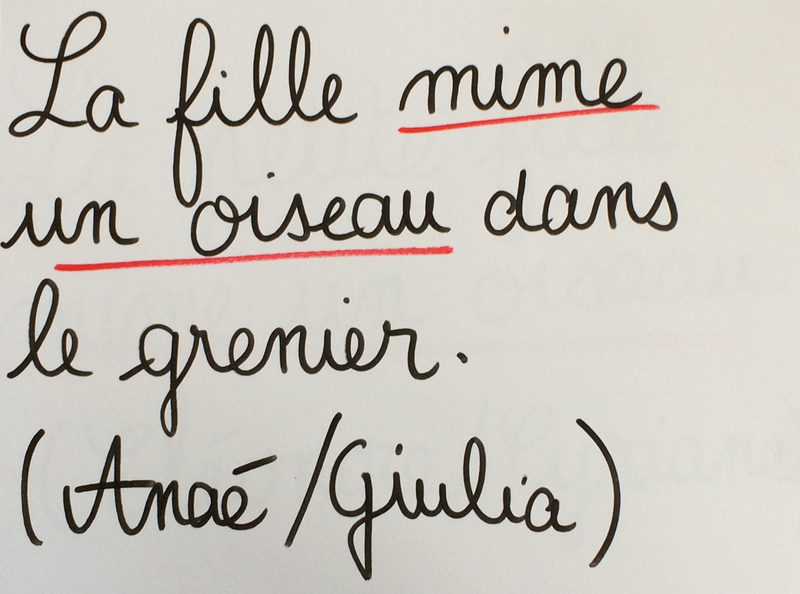 La fille mime
un oiseau dans
le grenier.
(Anaé/Giulia)